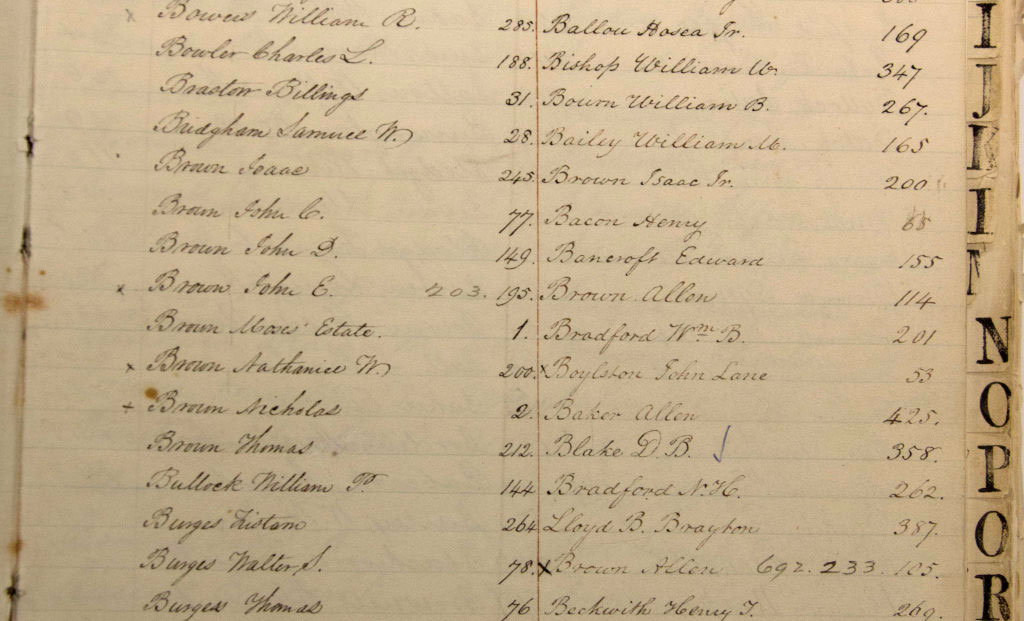 Bowers William R. 285.
Bowler Charles L. 188.
Brastow Billings 31.
Bridgham Samuel W. 28.
Brown Isaac 245.
Brown John C. 77.
Brown John D. 149.
x Brown John E. 203. 195.
Brown Moses' Estate. 1.
x Brown Nathaniel W. 200.
+ Brown Nicholas 2.
Brown Thomas 212.
Bullock William P. 144
Burges Tristam 264
Burges Walter S. 78.
Burgess Thomas 76
Ballou Hosea Jr. 169
Bishop William W. 347
Bown William B. 267.
Bailey William M. 165
Brown Isaac Jr. 200
Bacon Henry
Bancroft Edward 155
Brown Allen 114
Bradford Wm B. 201
x Boylston John Lane 53
Baker Allen 425.
Blake D. B. 358.
Bradford N. H. 262.
Lloyd B. Brayton 387.
x Brown Allen 692. 233. 105.
Beckwith Henry T. 269.
I
J
K
N
O
P
R